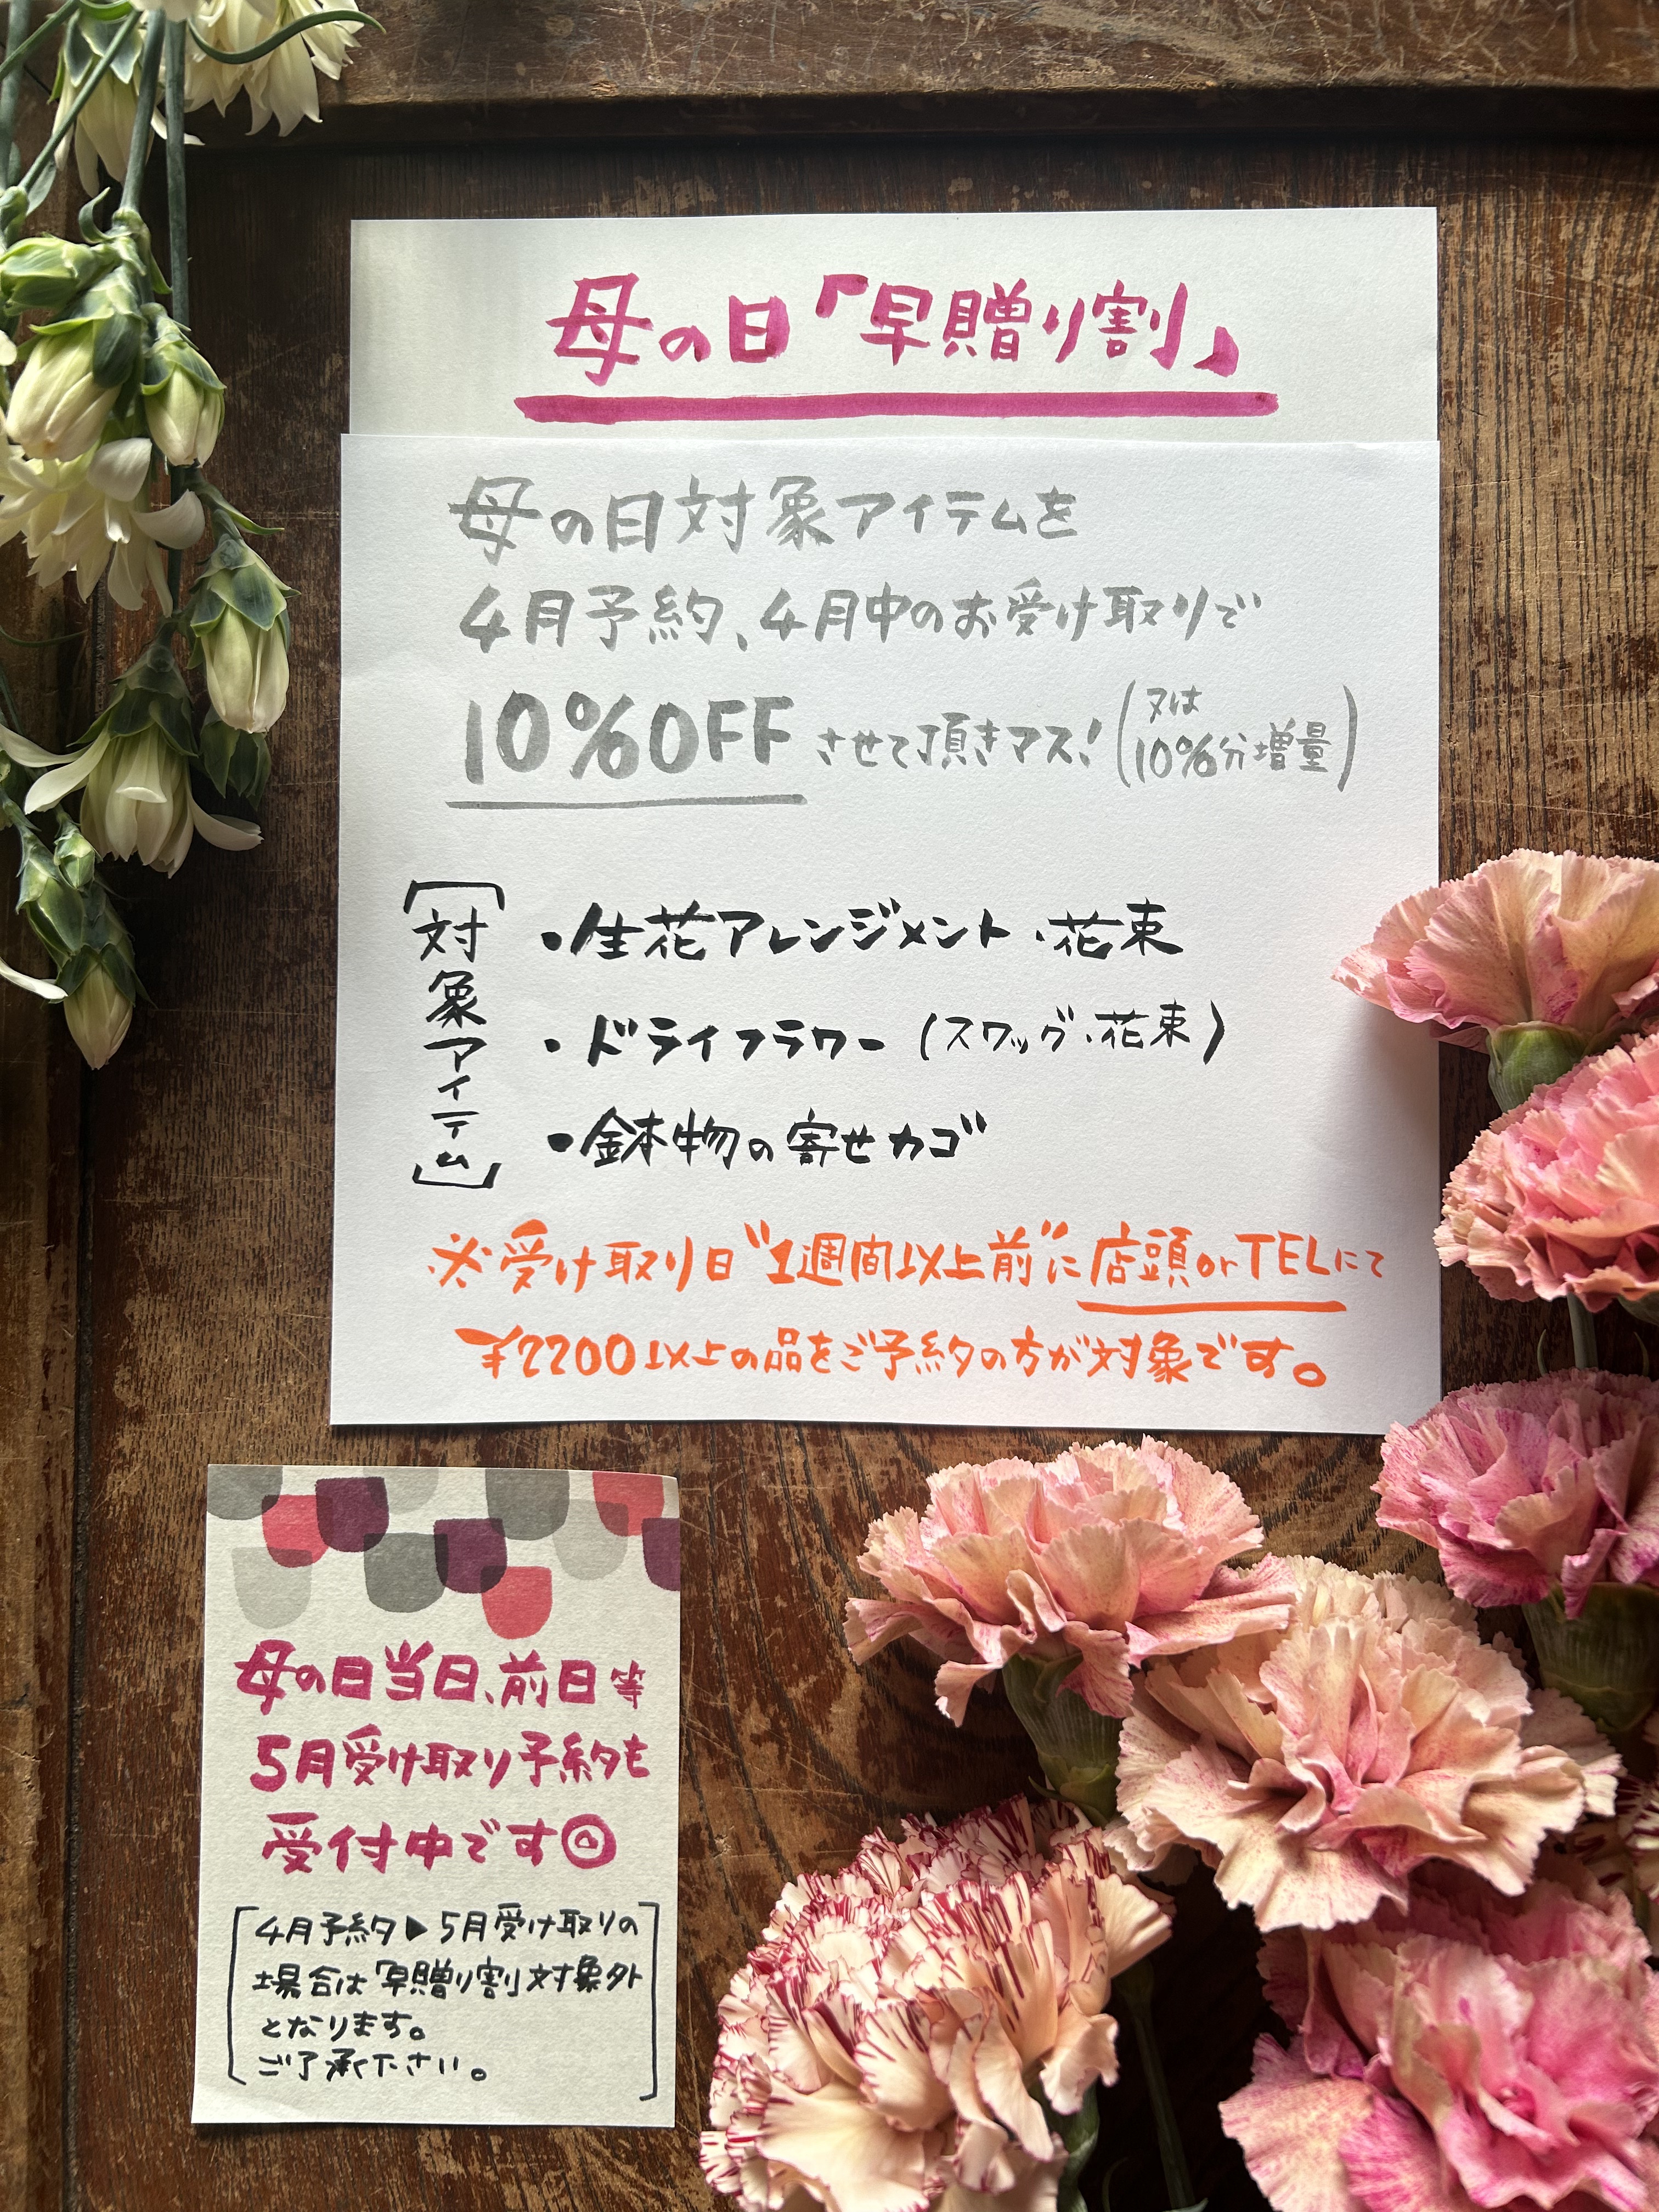 母の日「早贈り割」
母の日対象アイテムを
4月予約、4月中のお受け取りで
10%OFFさせて頂きマス!(又は10%分増量)
[対象アイテム]
・生花アレンジメント・花束
・ドライフラワー(スワッグ・花束)
・鉢物の寄せカゴ
※受け取り日"1週間以上前"に店頭orTELにて
¥2200以上の品をご予約の方が対象です。
母の日当日、前日等
5月受け取り予約も
受付中です◎
[4月予約▶5月受け取りの
場合は「早贈り割」対象外
となります。
ご了承下さい。]